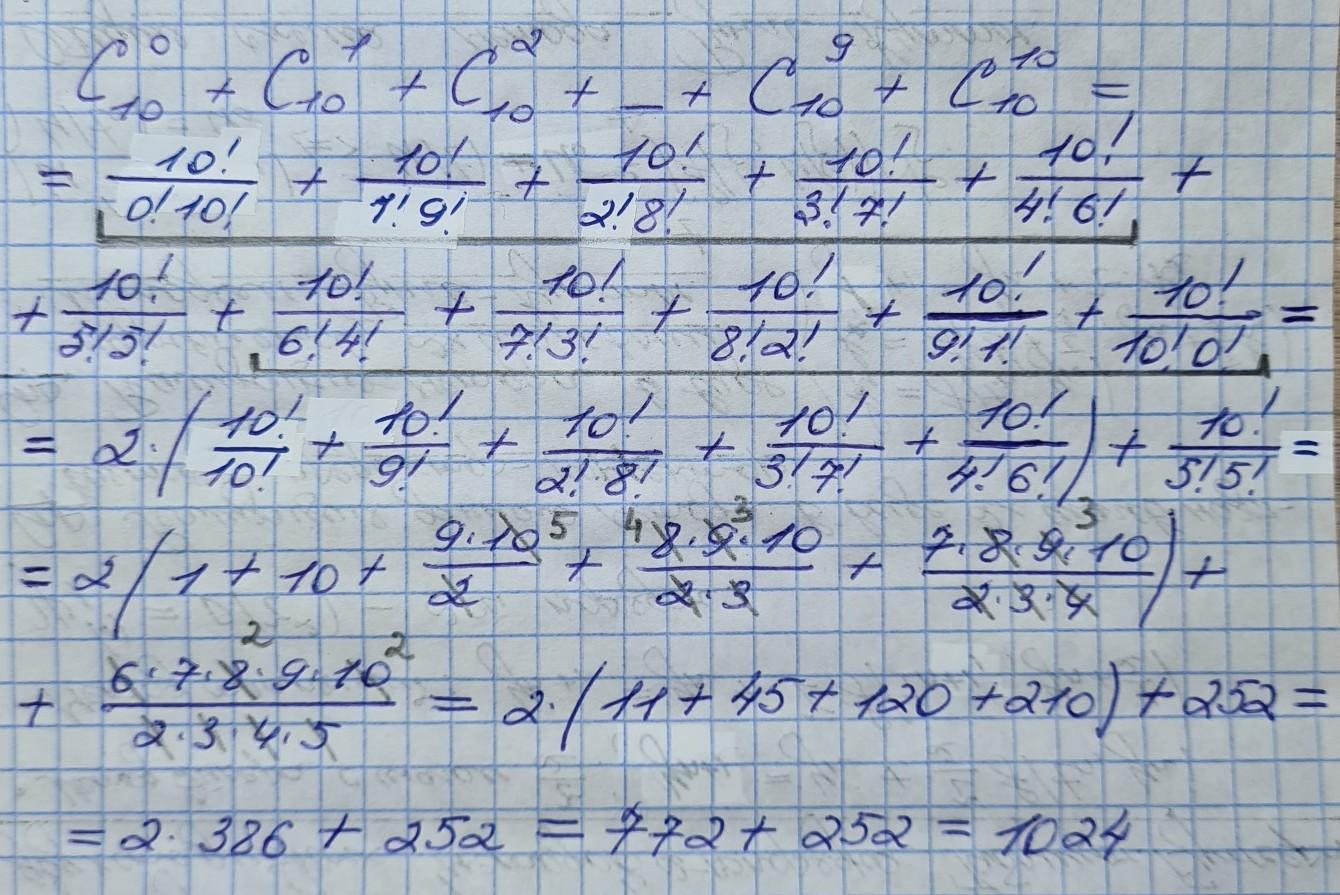 C₁₀⁰ + C₁₀¹ + C₁₀² + _ + C₁₀⁹ + C₁₀¹⁰ =
= 10!/(0! 10!) + 10!/(1! 9!) + 10!/(2! 8!) + 10!/(3! 7!) + 10!/(4! 6!) +
+ 10!/(5! 5!) + 10!/(6! 4!) + 10!/(7! 3!) + 10!/(8! 2!) + 10!/(9! 1!) + 10!/(10! 0!) =
= 2·(10!/10! + 10!/9! + 10!/(2! 8!) + 10!/(3! 7!) + 10!/(4! 6!)) + 10!/(5! 5!) =
= 2(1 + 10 + (9·10 5)/2 + (4 8·9 3·10)/(2·3) + (7·8·9 3·10)/(2·3·4)) +
+ (6·7·8 2·9·10 2)/(2·3·4·5) = 2·(11 + 45 + 120 + 210) + 252 =
= 2·386 + 252 = 772 + 252 = 1024